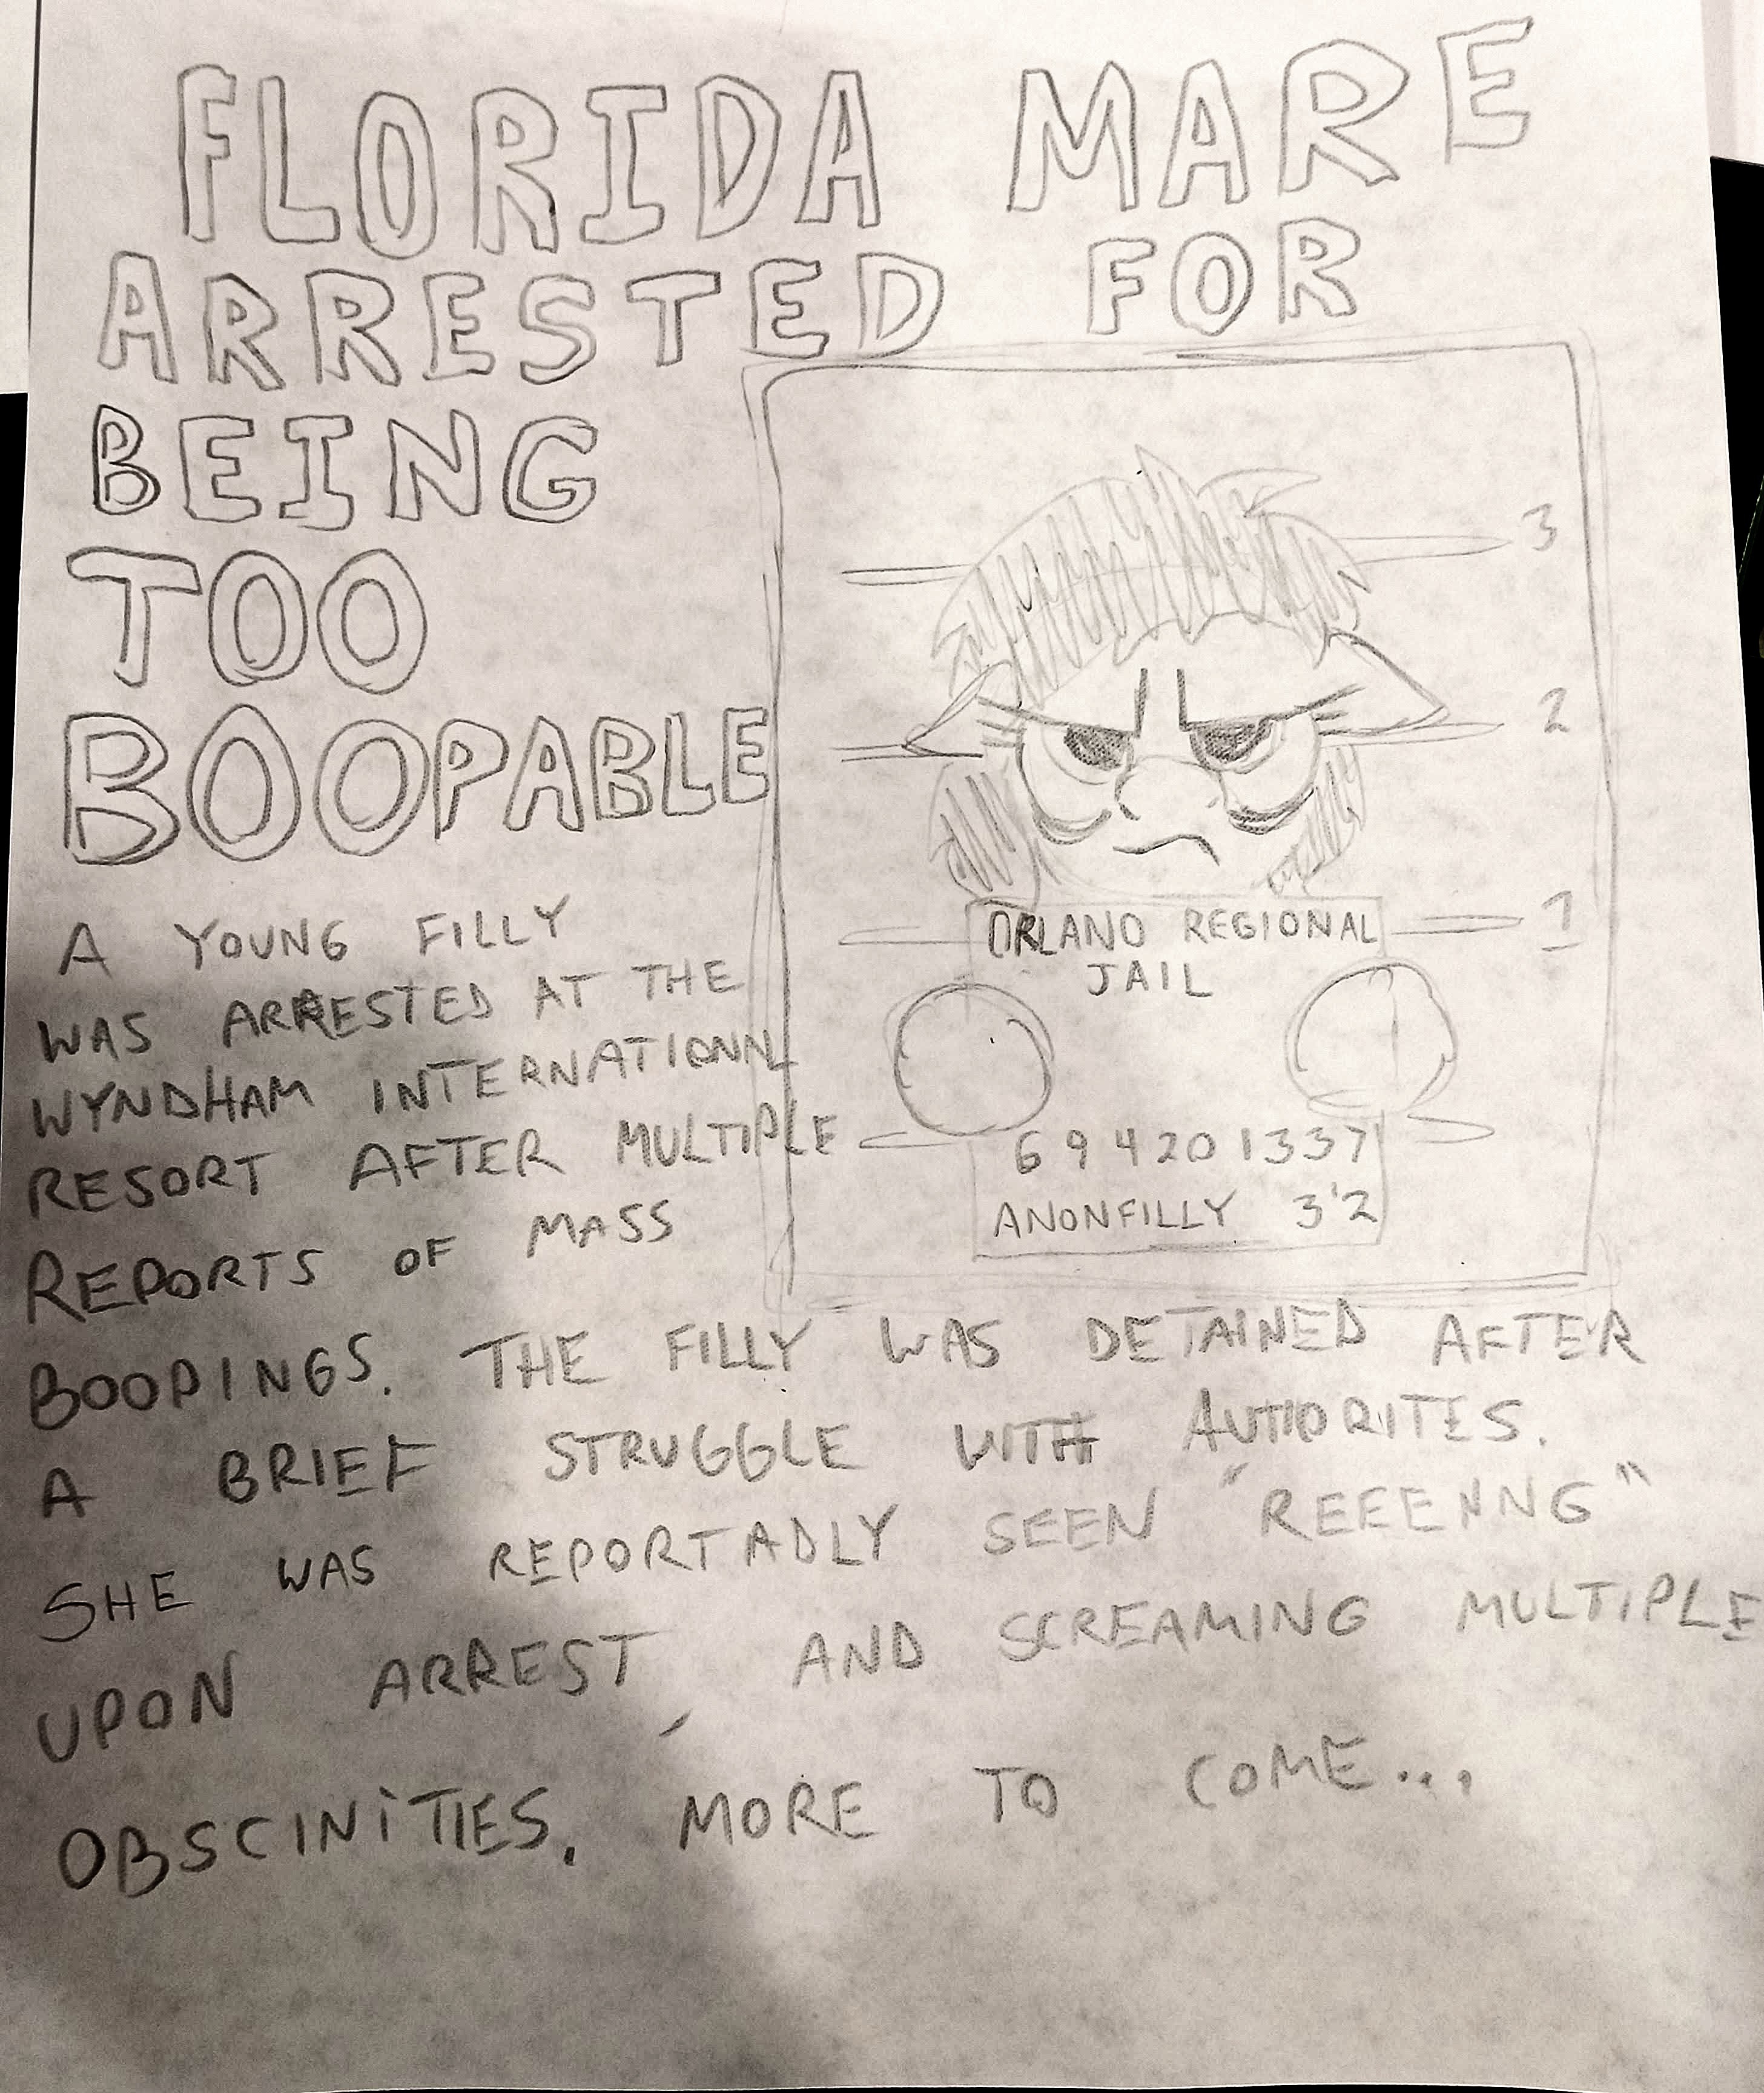 FLORIDA MARE
ARRESTED FOR
BEING
TOO
BOOPABLE
3
2
1
ORLANO REGIONAL
JAIL
694201337
ANONFILLY 3'2
A YOUNG FILLY
WAS ARRESTED AT THE
WYNDHAM INTERNATIONNL
RESORT AFTER MULTIPLE
REPORTS OF MASS
BOOPINGS. THE FILLY WAS DETAINED AFTER
A BRIEF STRUGGLE WITH AUTHORITES.
SHE WAS REPORTADLY SEEN "REEENNG"
UPON ARREST, AND SCREAMING MULTIPLE
OBSCINITIES. MORE TO COME...